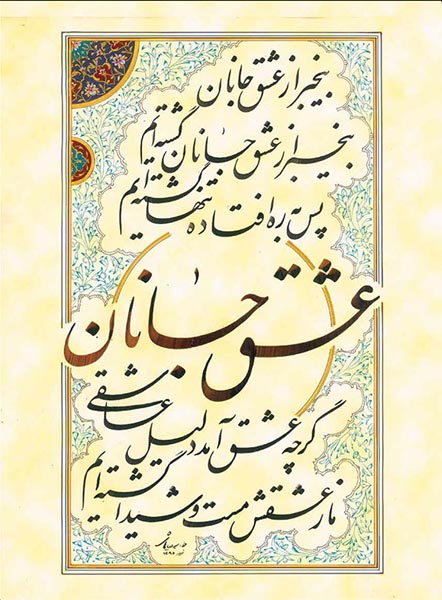 بیخبر از عشق جانان
بیخبر از عشق جانان گشته‌ایم
پس به ره افتاده تنها گشته‌ایم
عشق جانان
گرچه عشق آمد دلیل عاشقی
ما ز عشقش مست و شیدا گشته‌ایم